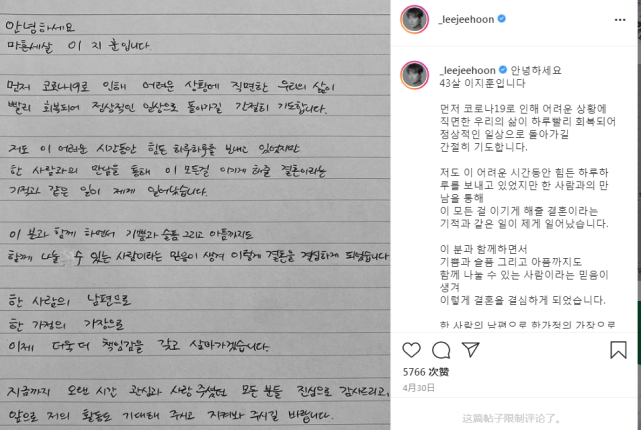 안녕하세요
마흔세살 이 지 훈입니다.
먼저 코로나19로 인해 어려운 상황에 직면한 우리의 삶이
빨리 회복되어 정상적인 일상으로 돌아가길 간절히 기도합니다.
저도 이 어려운 시간동안 힘든 하루하루를 보내고 있었지만
한 사람과의 만남을 통해 이 모든걸 이기게 해줄 결혼이라는
기적과 같은 일이 제게 일어났습니다.
이 분과 함께 하면서 기쁨과 슬픔 그리고 아픔까지도
함께 나눌 수 있는 사람이라는 믿음이 생겨 이렇게 결혼을 결심하게 되었습니다
한 사람의 남편으로
한 가정의 가장으로
이제 더욱더 책임감을 갖고 살아가겠습니다.
지금까지 오랜 시간 관심과 사랑 주셨던 모든 분들 진심으로 감사드리고,
앞으로 저의 활동도 기대해 주시고 지켜봐 주시길 바랍니다.
_leejeehoon
_leejeehoon 안녕하세요
43살 이지훈입니다
먼저 코로나19로 인해 어려운 상황에
직면한 우리의 삶이 하루빨리 회복되어
정상적인 일상으로 돌아가길
간절히 기도합니다.
저도 이 어려운 시간동안 힘든 하루하
루를 보내고 있었지만 한 사람과의 만
남을 통해
이 모든 걸 이기게 해줄 결혼이라는
기적과 같은 일이 제게 일어났습니다.
이 분과 함께하면서
기쁨과 슬픔 그리고 아픔까지도
함께 나눌 수 있는 사람이라는 믿음이
생겨
이렇게 결혼을 결심하게 되었습니다.
한 사람의 남편으로 한가정의 가장으로
5766 次赞
4月30日
这篇帖子限制评论了。